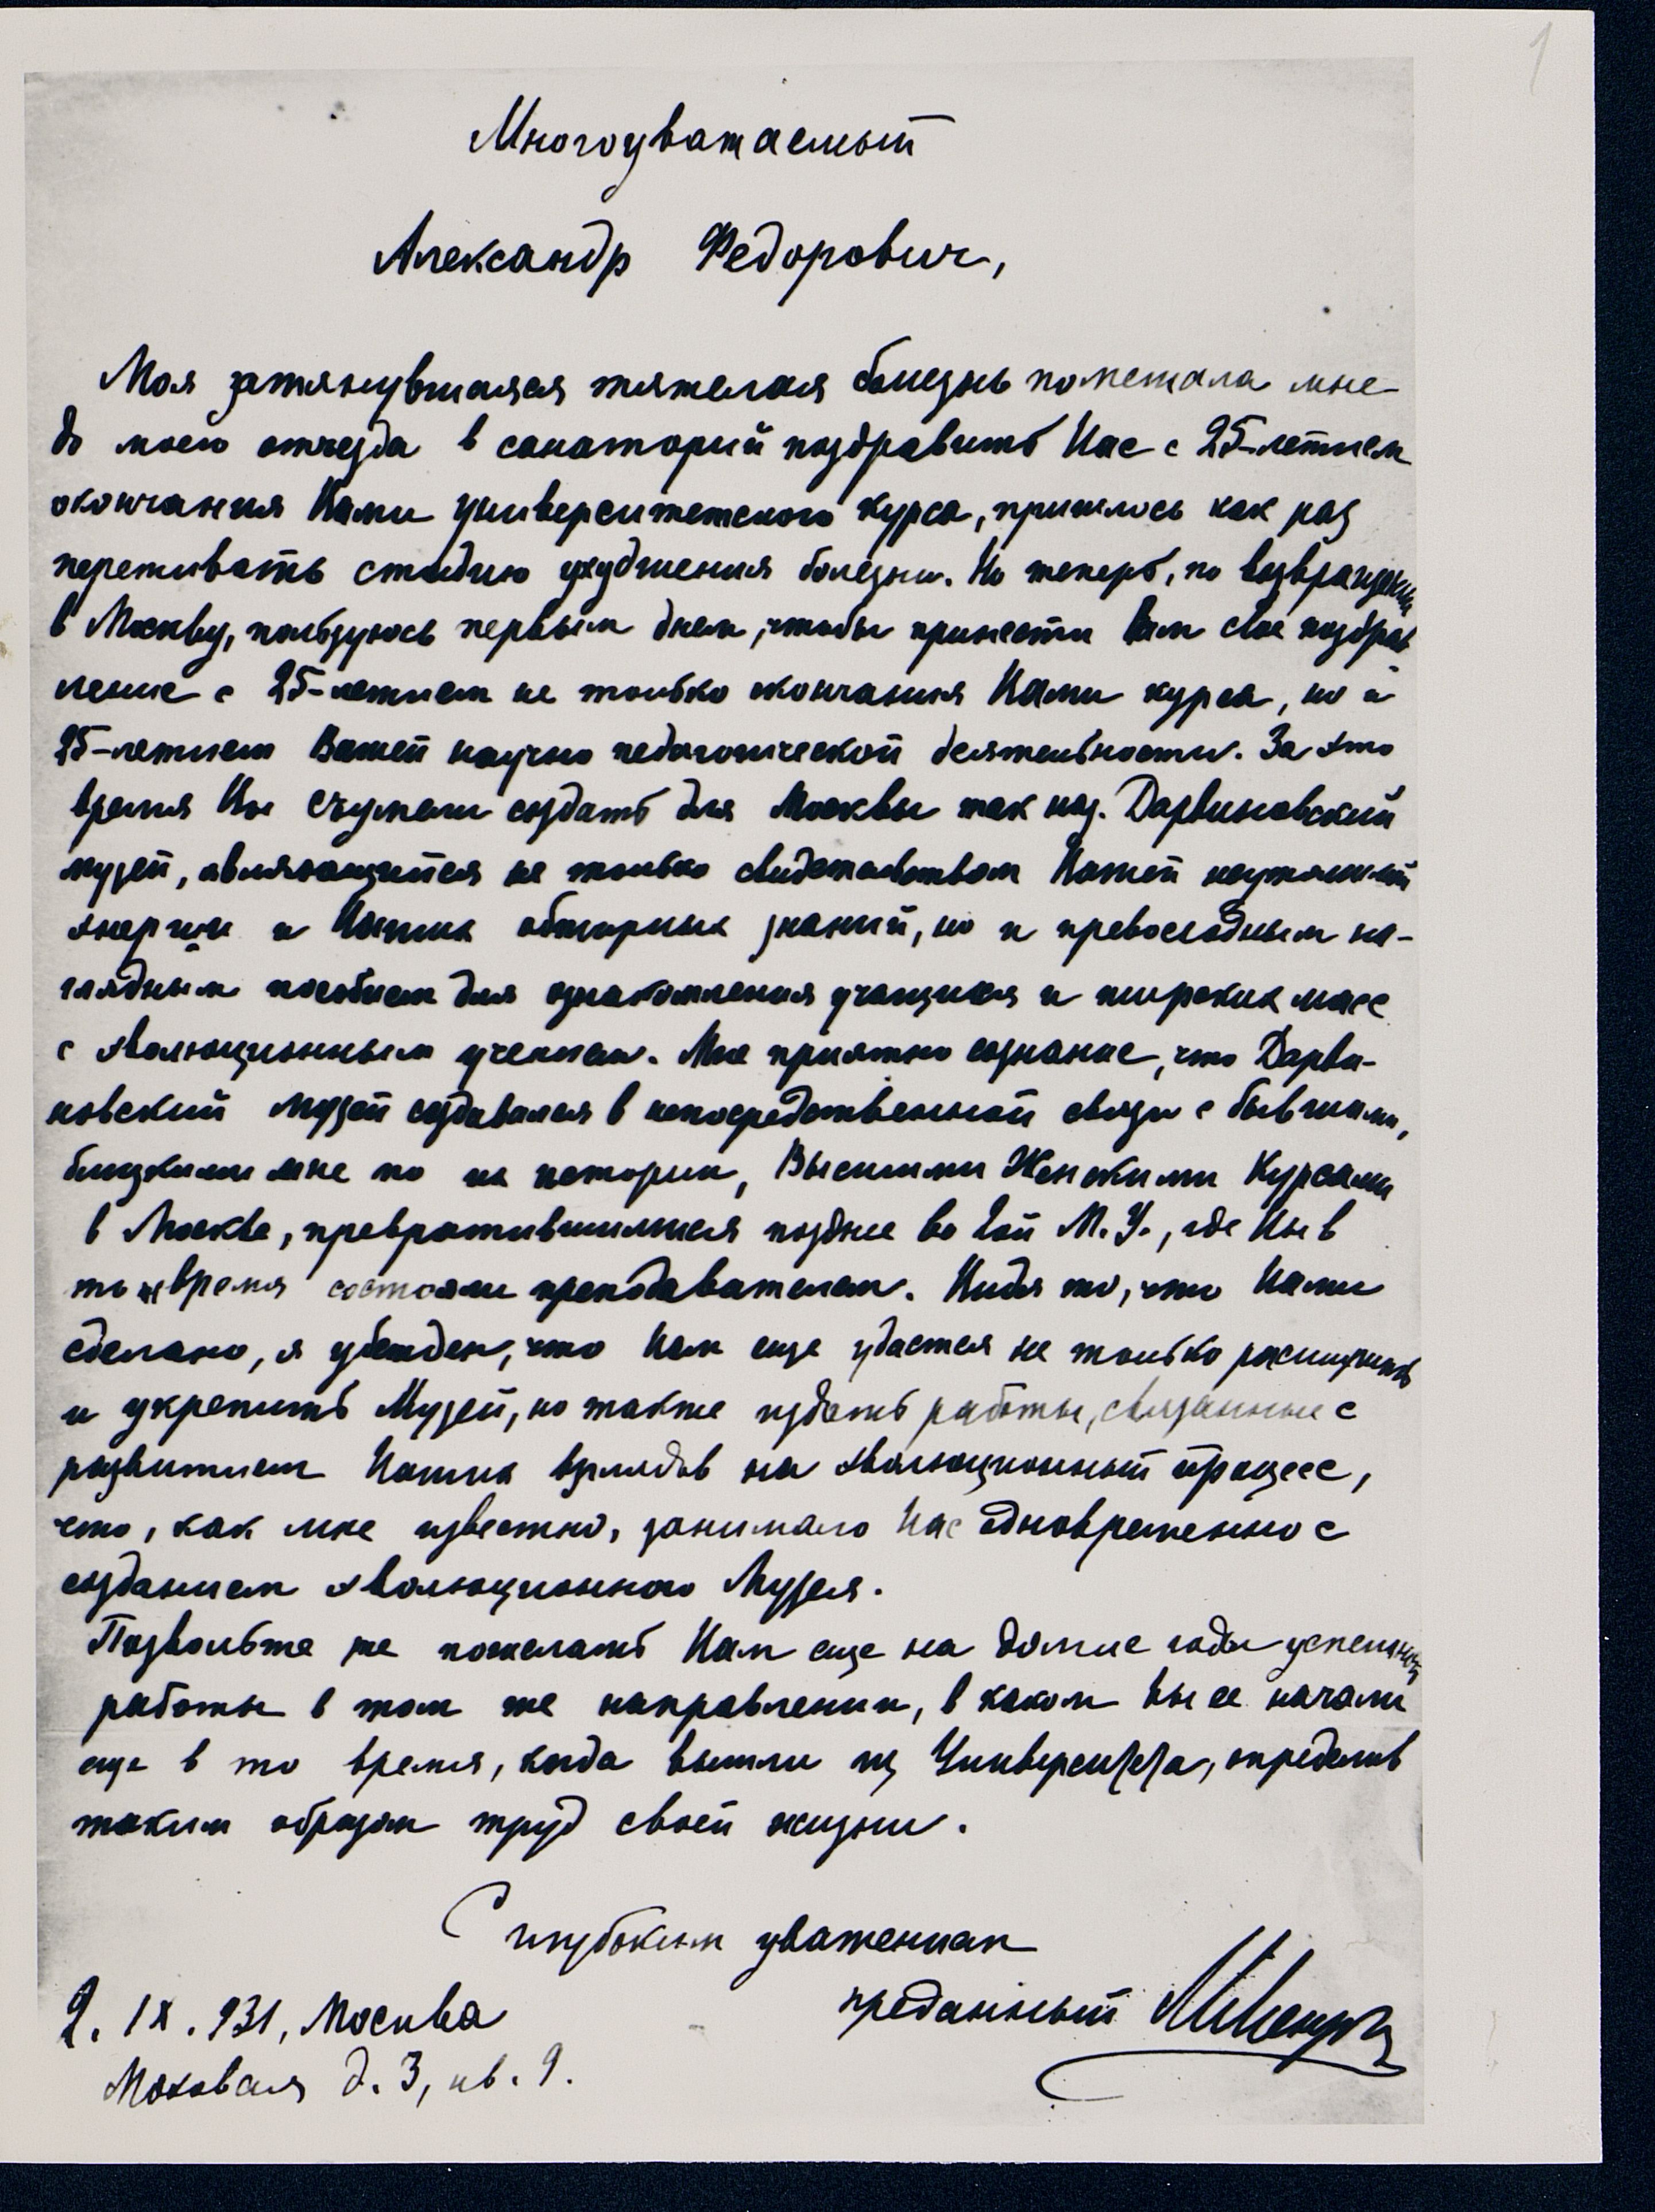 1
Многоуважаемый
Александр Федорович,
Моя затянувшаяся тяжелая болезнь помешала мне
до моего отъезда в санаторий поздравить Вас с 25-летием
окончания Вами университетского курса, пришлось как раз
переживать стадию ухудшения болезни. Но теперь, по возвращении
в Москву, пользуюсь первым днем, чтобы принести Вам свое поздрав
ление с 25-летием не только окончания Вами курса, но и
25-летием Вашей научно педагогической деятельности. За это
время Вы съумели создать для Москвы так наз. Дарвиновский
музей, являющийся не только свидетельством Вашей неутомимой
энергии и Ваших обширных знаний, но и превосходным на-
глядным пособием для ознакомления учащихся и широких масс
с эволюционным учением. Мне приятно сознание, что Дарви-
новский Музей создавался в непосредственной связи с бывшими,
близкими мне по их истории, Высшими Женскими Курсами
в Москве, превратившимися позднее во 2ой М.У., где Вы в
то же время состояли преподавателем. Видя то, что Вами
сделано, я убежден, что Вам еще удастся не только расширить
и укрепить Музей, но также издать работы, связанные с
развитием Ваших взглядов на эволюционный процесс,
что, как мне известно, занимало Вас одновременно с
созданием эволюционного Музея.
Позвольте же пожелать Вам еще на долгие годы успешной
работы в том же направлении, в каком Вы ее начали
еще в то время, когда вышли из Университета, определив
таким образом труд своей жизни.
С глубоким уважением
преданный
2. IX. 931, Москва
Моховая д. 3, кв. 9.